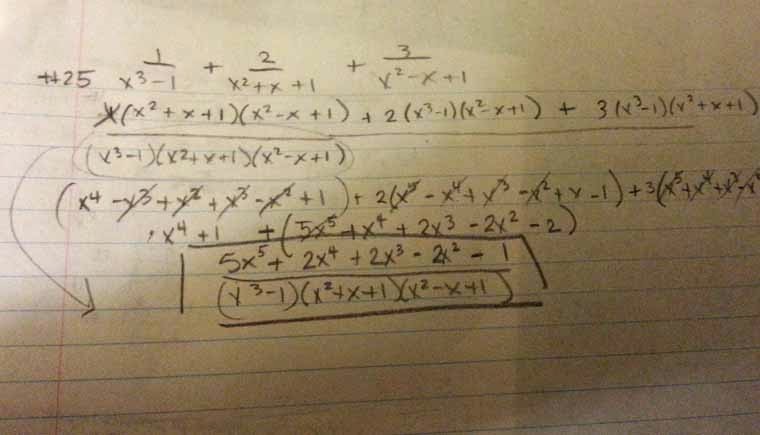 #25 1/(x³-1) + 2/(x²+x+1) + 3/(x²-x+1)
1(x²+x+1)(x²-x+1) + 2(x³-1)(x²-x+1) + 3(x³-1)(x²+x+1)
(x³-1)(x²+x+1)(x²-x+1)
(x⁴-x³+x²+x³-x²+1) + 2(x⁵-x⁴+x³-x²+x-1) + 3(x⁵+x⁴+x³-x²
x⁴+1 + (5x⁵+x⁴+2x³-2x²-2)
5x⁵+2x⁴+2x³-2x²-1
(x³-1)(x²+x+1)(x²-x+1)